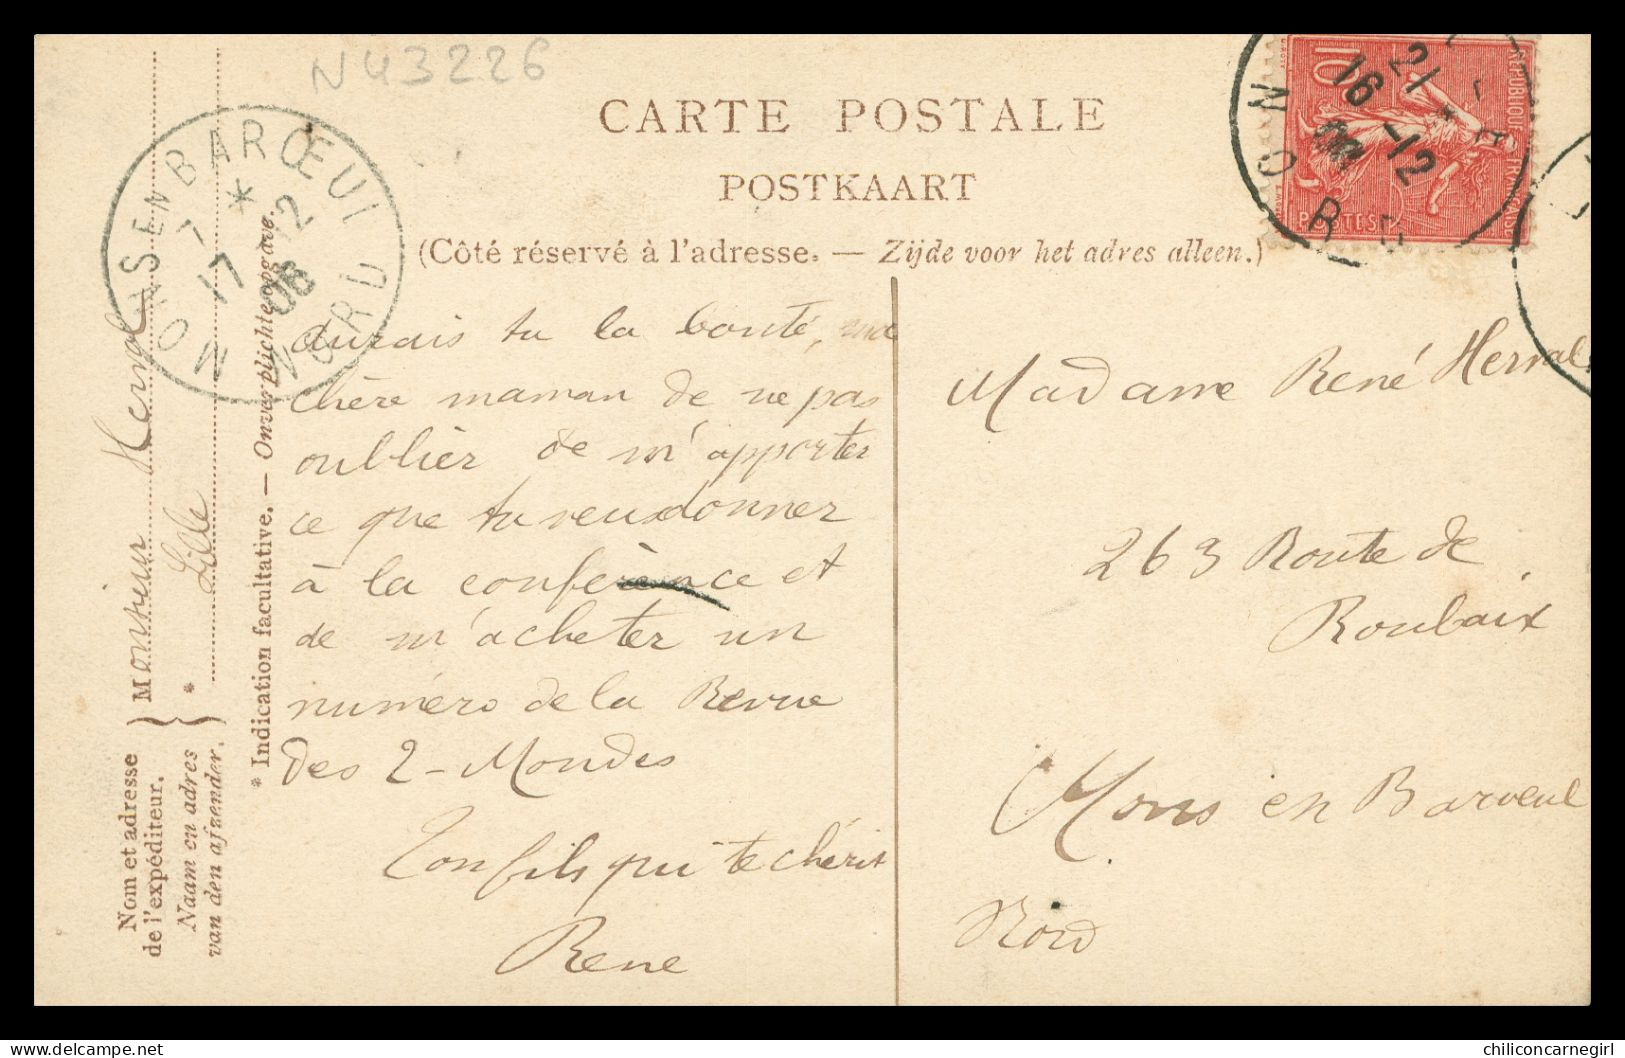 N43226
CARTE POSTALE
POSTKAART
(Côté réservé à l'adresse. — Zijde voor het adres alleen.)
MONS EN BARŒUL
NORD
7 *
17 12
08
REPUBLIQUE FRANÇAISE
10
POSTES
21
16 -12
08
NORD
aurais tu la bonté, ma
chère maman de ne pas
oublier de m'apporter
ce que tu veux donner
à la conférence et
de m'acheter un
numéro de la Revue
des 2 - Mondes
Ton fils qui te chérit
Rene
Madame René Herval
263 Route de
Roubaix
Mons en Baroeul
Nord
Nom et adresse
de l'expéditeur.
Naam en adres
van den afzender.
Monsieur Herval
* Lille
* Indication facultative. — Onverplichte opgave.
chiliconcarnegirl